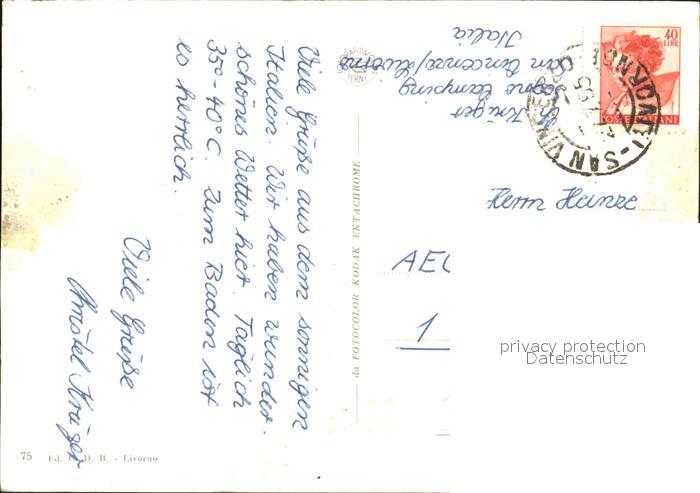 Viele Grüße aus dem sonnigen
Italien. Wir haben wunder-
schönes Wetter hier. Täglich
35°-40°C. Zum Baden ist
es herrlich.
Viele Grüße
Krüger
Krüger
Camping
San Vincenzo/Livorno
Italia
40
LIRE
POSTE ITALIANE
SAN VINCENZO
Herrn Heinze
AEG
1
privacy protection
Datenschutz
da FOTOCOLOR KODAK EKTACHROME
TERNI
75
Ed. D. B. - Livorno